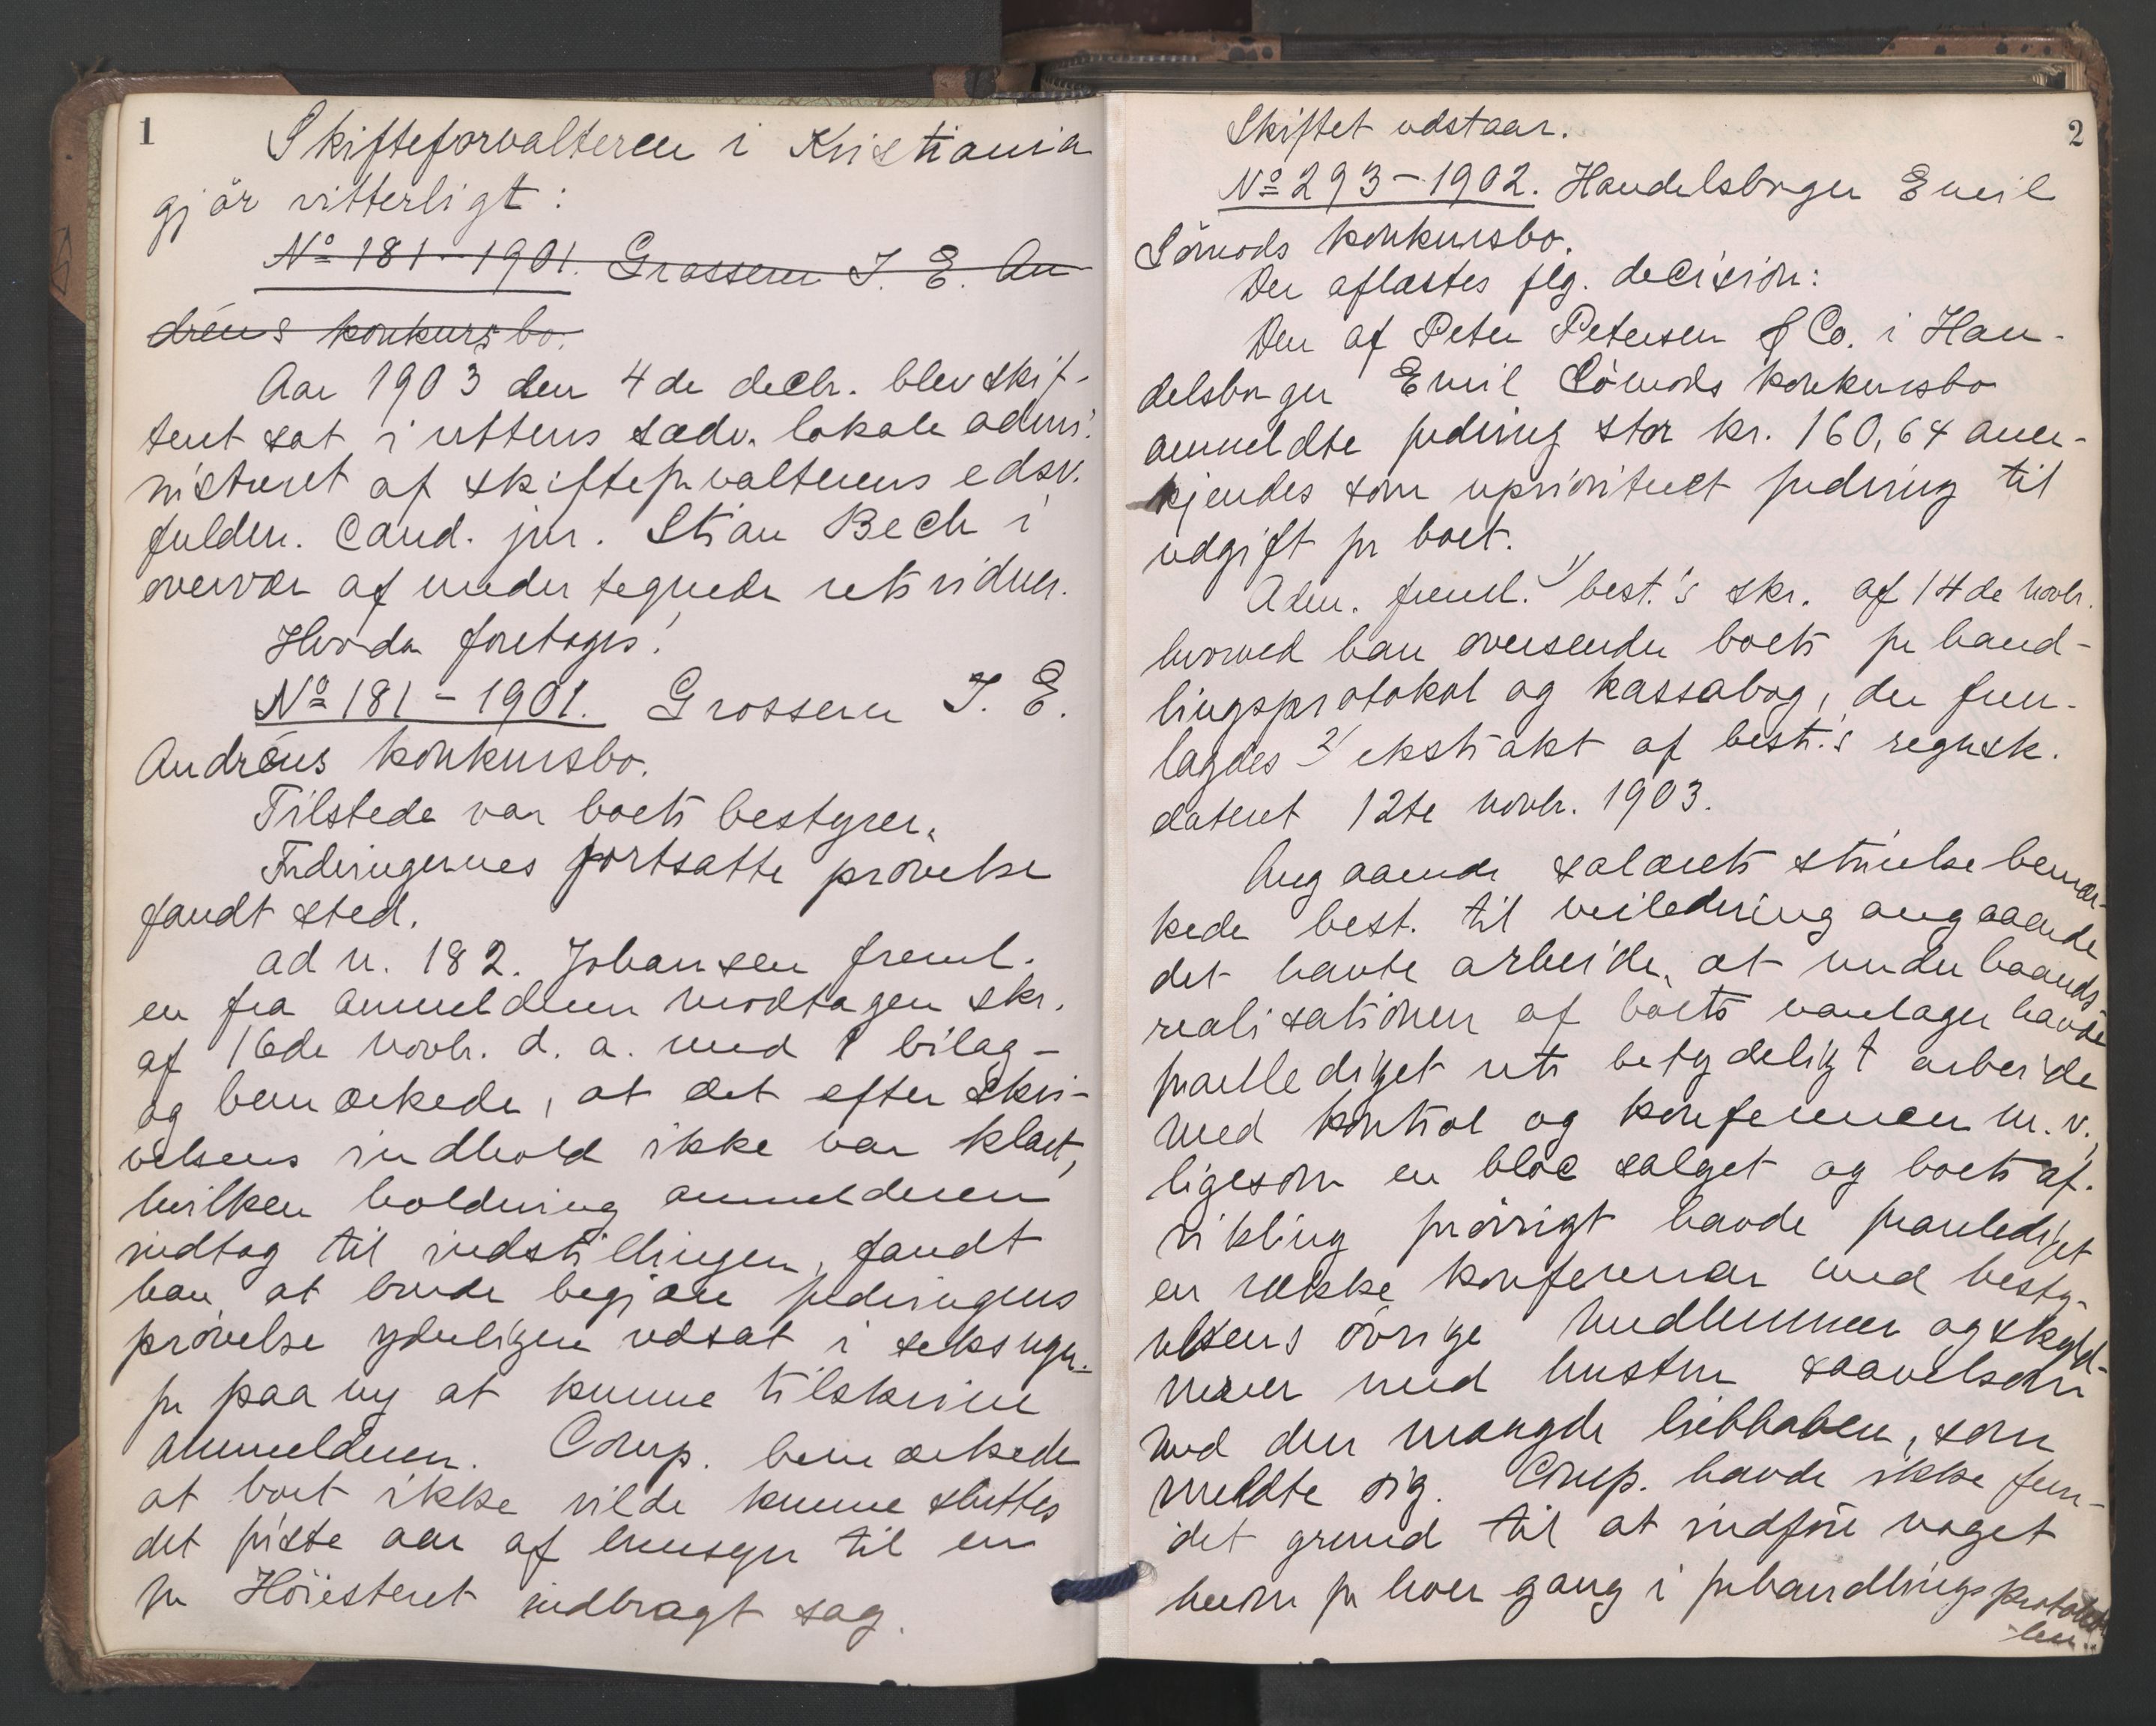 1
Skifteforvalteren i Kristiania
gjör vitterligt:
No 181-1901. Grosserer J. E. An
dréns konkursbo.
Aar 1903 den 4de decbr. blev skif-
teret sat i rettens sædv. lokale admi-
nistreret af skifteforvalterens edsv.
fuldm. Cand. jur. Stian Bech i
overvær af undertegnede retsvidner.
Hvorda foretoges:
No 181-1901. Grosserer J. E.
Andréns konkursbo.
Tilstede var boets bestyrer.
Fordringernes fortsatte prövelse
fandt sted.
ad n. 182. Johansen freml.
en fra anmelderen modtagen skr.
af 16de novbr. d. a. med 1 bilag -
og bemærkede, at det efter skri-
velsens indhold ikke var klart,
hvilken holdning anmelderen
indtog til indstillingen, fandt
han, at burde begjære fordringens
prövelse yderligere udsat i seks uger
for paa ny at kunne tilskrive
anmelderen. Comp. bemærkede
at boet ikke vilde kunne sluttes
det förste aar af hensyn til en
for Höiesteret indbragt sag.
2
Skiftet udstaar.
No 293-1902. Handelsborger Emil
Sömods konkursbo.
Der aflæstes flg. decision:
Den af Peter Petersen & Co. i Han-
delsborger Emil Sömods konkursbo
anmeldte fordring stor kr. 160,64 aner-
kjendes som uprioriteret fordring til
udgift for boet.
Adm. freml. 1/ best.'s skr. af 14de novbr.
hvorved han oversender boets forhand-
lingsprotokol og kassabog, der frem-
lagdes 2/ ekstrakt af best.'s regnsk.
dateret 12te novbr. 1903.
Angaaende salærets störrelse bemær-
kede best. til veiledning angaaende
det havte arbeide, at underhaands
realisationen af boets varelager havde
foranlediget ret betydeligt arbeide
med kontrol og konferencer m. v.,
ligesom en bloc salget og boets af-
vikling forövrigt havde foranlediget
en række konferencer med besty-
relsens övrige medlemmer og skyld-
neren med hustru saavelsom
med den mængde liebhabere, som
meldte sig. Comp. havde ikke fun-
det grund til at indföre noget
herom for hver gang i forhandlingsprotokol-
len.